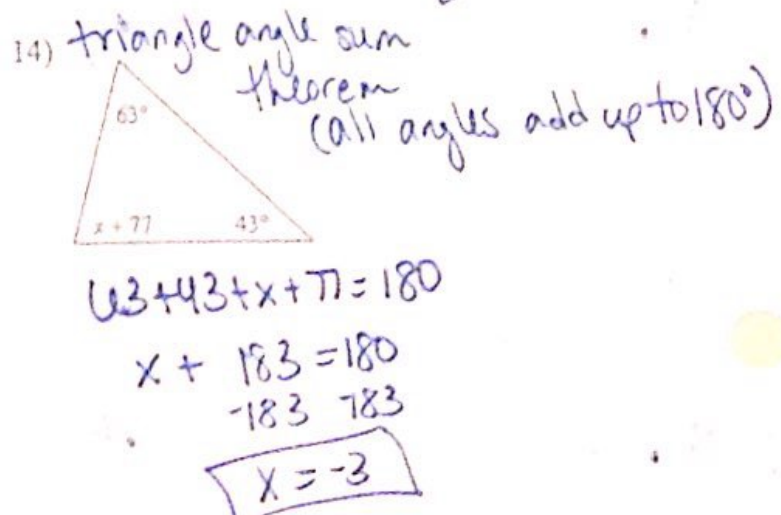 14) triangle angle sum
theorem
(all angles add up to 180°)
63°
x + 77 43°
63+43+x+77=180
x + 183 =180
-183 -183
x = -3